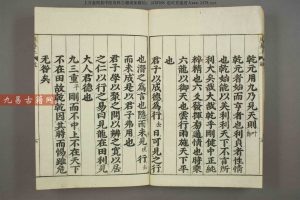 乾元用九乃見天則
乾元者始而亨者也利貞者性情
也乾始能以美利利天下不言所
利大矣哉大哉乾乎剛健中正純
粹精也六爻發揮旁通情也時乘
六龍以御天也雲行雨施天下平
也
君子以成德為行日可見之行
也潛之為言也隱而未見行
而未成是以君子弗用也
君子學以聚之問以辨之寬以居
之仁以行之易曰見龍在田利見
大人君德也
九三重剛而不中上不在天下
不在田故乾乾因其時而惕雖危
无咎矣
九易古籍网